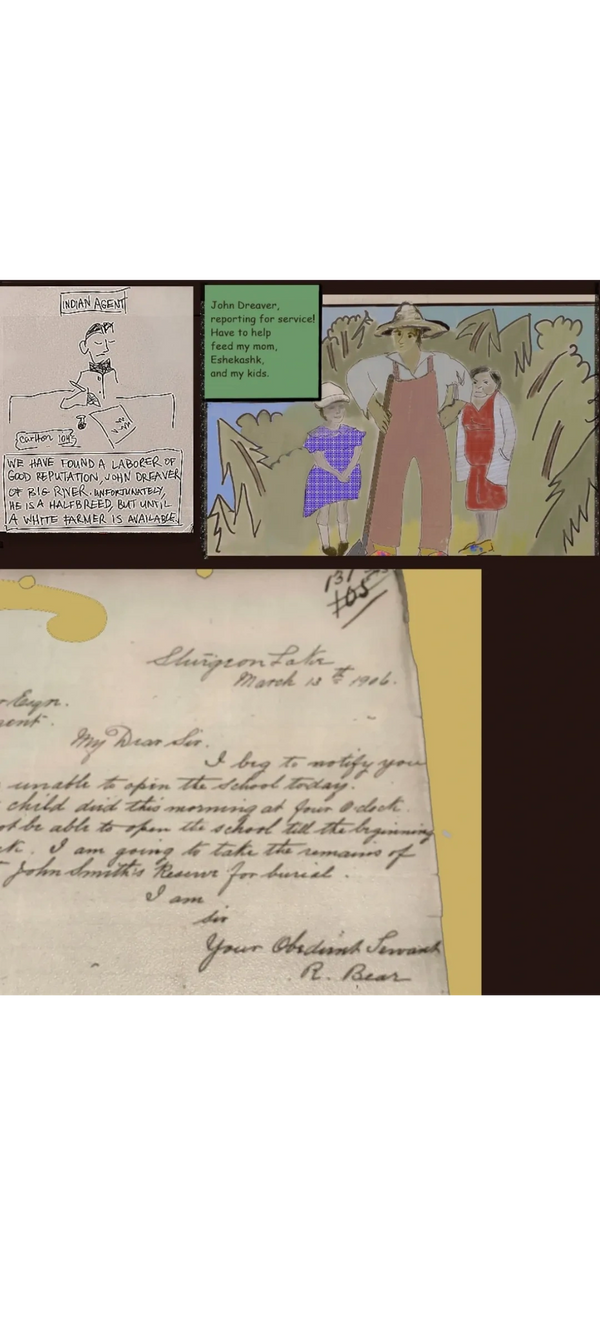 INDIAN AGENT
Carlton
WE HAVE FOUND A LABORER OF
GOOD REPUTATION, JOHN DREAVER
OF BIG RIVER. UNFORTUNATELY,
HE IS A HALFBREED, BUT UNTIL
A WHITE FARMER IS AVAILABLE
John Dreaver,
reporting for service!
Have to help
feed my mom,
Eshekashk,
and my kids.
Sturgeon Lake
March 13th 1906.
My Dear Sir.
I beg to notify you
unable to open the school today.
child died this morning at four O clock.
be able to open the school till the beginning
I am going to take the remains of
John Smith's Reserve for burial.
I am
sir
Your Obedient Servant
R. Bear